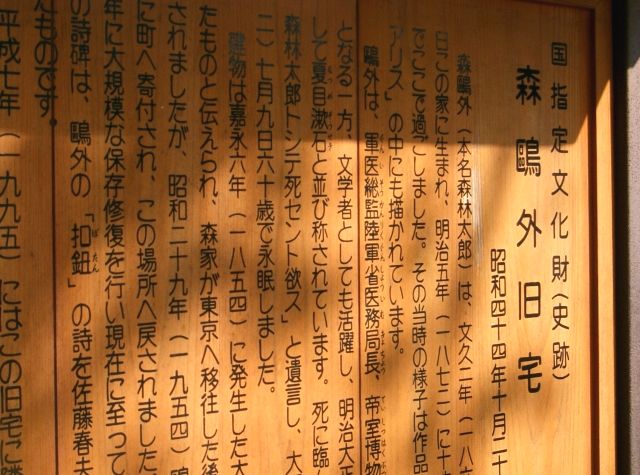 国指定文化財(史跡)
森鷗外旧宅
昭和四十四年十月二十
森鷗外(本名森林太郎)は、文久二年(一八六
日この家に生まれ、明治五年(一八七二)に十
でここで過ごしました。その当時の様子は作品
アリス」の中にも描かれています。
鷗外は、軍医総監陸軍省医務局長、帝室博物
となる一方、文学者としても活躍し、明治大正
して夏目漱石と並び称されています。死に臨
森林太郎トシテ死セント欲ス」と遺言し、大
二)七月九日六十歳で永眠しました。
建物は嘉永六年(一八五四)に発生した大
たものと伝えられ、森家が東京へ移住した後
されましたが、昭和二十九年(一九五四)鷗
に町へ寄付され、この場所へ戻されました
年に大規模な保存修復を行い現在に至って
の詩碑は、鷗外の「扣鈕」の詩を佐藤春夫
たものです。
平成七年(一九九五)にはこの旧宅に隣